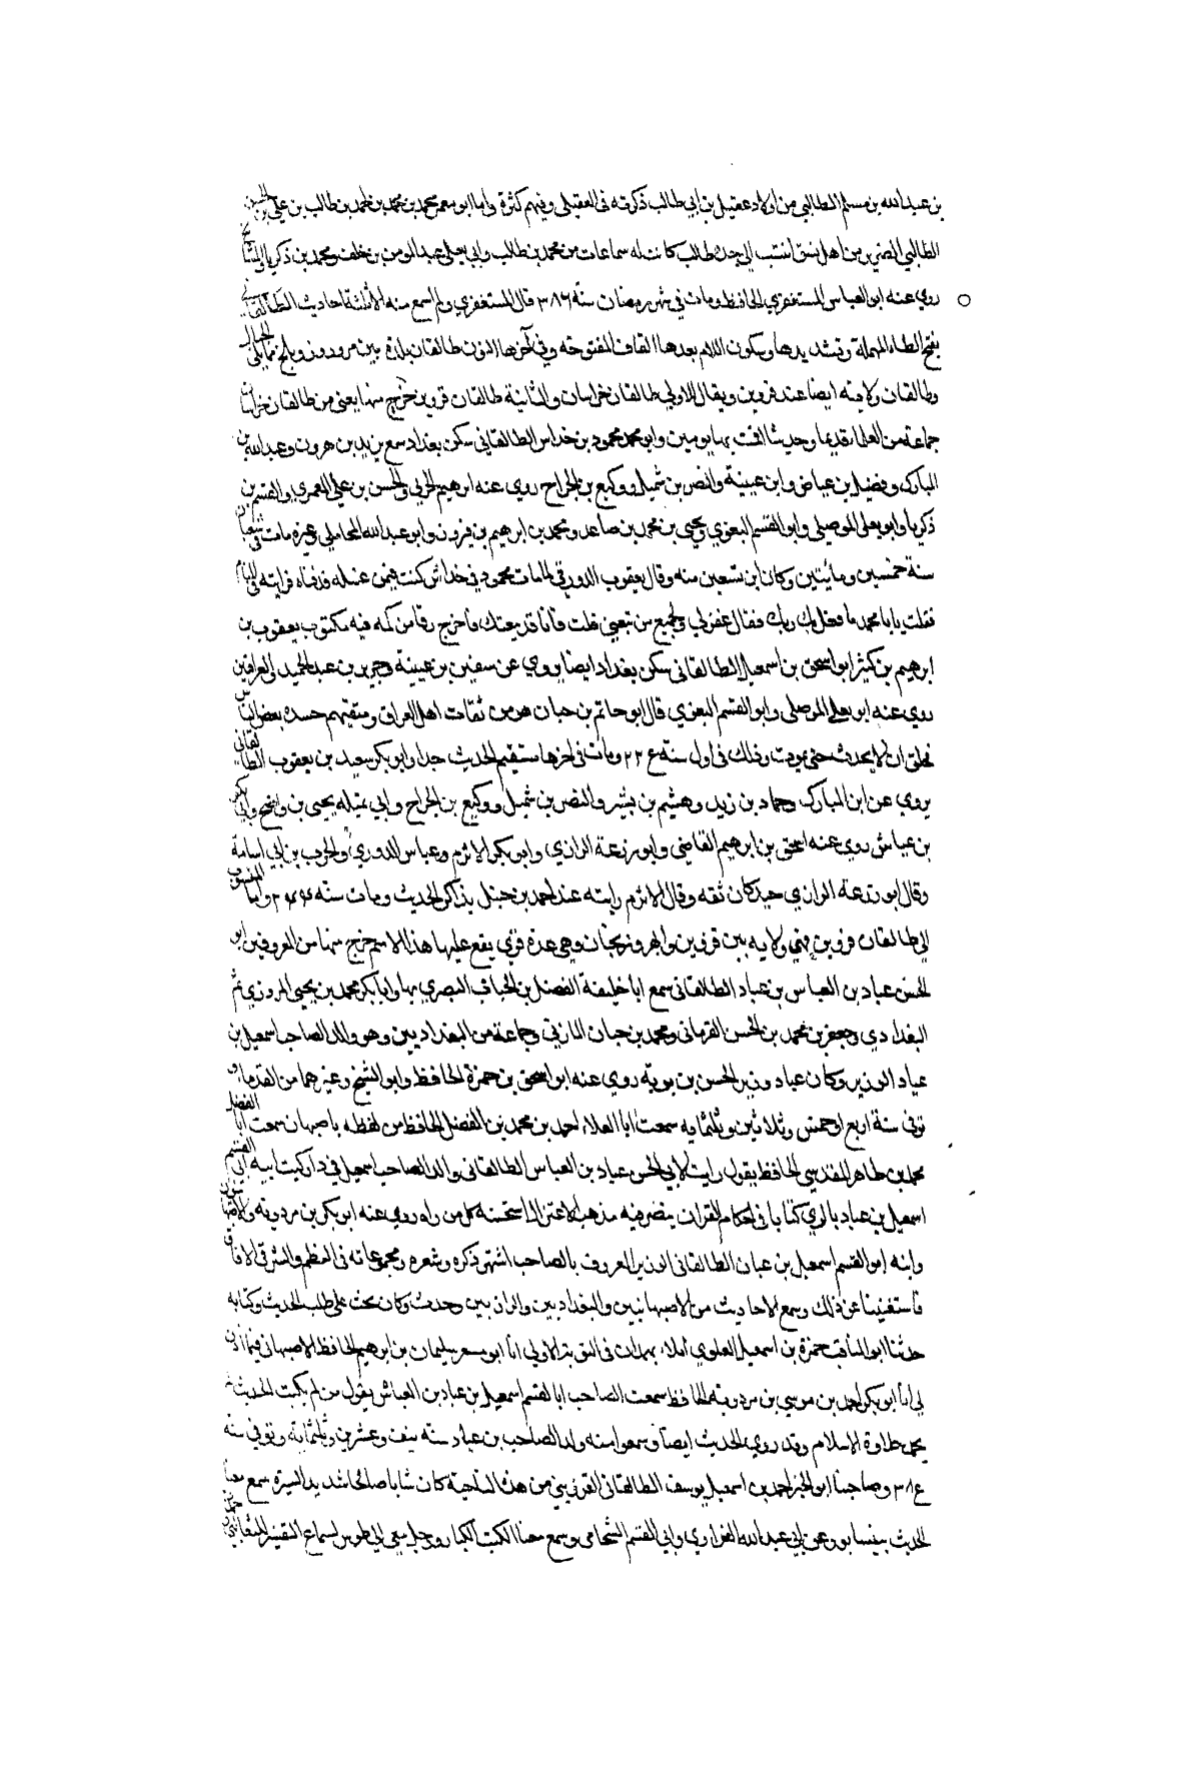 بن عبد الله بن مسلم الطالبي من اولاد عقيل بن ابي طالب ذكرته في العقيلي وفيهم كثرة واما ابو معمر محمد بن محمد بن احمد بن طالب بن علي بن الحسن
الطالبي الضرير من اهل نسف انتسب الى جده طالب كانت له سماعات من محمد بن طالب وابي يعلى عبد المومن بن خلف ومحمد بن زكريا
روي عنه ابو العباس المستغفري الحافظ ومات في شهر رمضان سنة ٣٨٦ قال المستغفري ولم اسمع منه الا ثلثة احاديث الطالقاني
بفتح الطاء المهملة وتشديدها وسكون اللام بعدها القاف المفتوحة وفي آخرها النون طالقان بلدة بين مرورود وبلخ مما يلي الجبال
وطالقان ولاية ايضا عند قزوين ويقال للاولى طالقان خراسان والثانية طالقان قزوين خرج منها يعني من طالقان خراسان
جماعة من العلماء قديما وحديثا اقمت بها يومين وابو محمد محمود بن خداش الطالقاني سكن بغداد سمع يزيد بن هرون وعبد الله بن
المبارك وفضيل بن عياض وابن عيينة والنضر بن شميل ووكيع بن الجراح روي عنه ابرهيم الحربي والحسن بن علي المعمري والقسم بن
زكريا وابو يعلى الموصلي وابو القسم البغوي ويحيى بن محمد بن صاعد ومحمد بن ابرهيم بن فيروز وابو عبد الله المحاملي وغيره مات في شعبان
سنة خمسين ومائيتين وكان ابن تسعين سنه وقال يعقوب الدورقي لما مات محمود بن خداش كنت فيمن غسله فدفناه فرايته في المنام
فقلت يا با محمد ما فعل بك ربك فقال غفر لي ولجميع من تبعني قلت فانا قد تبعتك فاخرج رقا من كمه فيه مكتوب يعقوب بن
ابرهيم بن كثير ابو اسحق بن اسمعيل الطالقاني سكن بغداد ايضا يروي عن سفين بن عيينة وجرير بن عبد الحميد والعراقيين
روي عنه ابو يعلى الموصلي وابو القسم البغوي قال ابو حاتم بن حبان هو من ثقات اهل العراق ومتقنيهم حسده بعض الناس
فحلق ان لا يحدث حتى يموت وذلك في اول سنة ٢٢ع ومات في اخرها مستقيم الحديث جدا وابو بكر سعيد بن يعقوب الطالقاني
يروي عن ابن المبارك وحماد بن زيد وهشيم بن بشير والنضر بن شميل ووكيع بن الجراح وابي تميله يحيى بن واضح وابي بكر
بن عياش روي عنه اسحق بن ابرهيم القاضي وابو زرعة الرازي وابو بكر الاثرم وعباس الدوري والحرب بن ابي اسامة
وقال ابو زرعة الرازي كان ثقه وقال الاثرم رايته عند احمد بن حنبل يذاكر الحديث ومات سنة واما المنسوب
الي طالقان قزوين فهي ولايه بين قزوين وابهر وزنجان وهي عدة قري يقع عليها هذا الاسم خرج منها من المعروفين ابو
الحسن عباد بن العباس بن عباد الطالقاني سمع ابا خليفة الفضل بن الحباب البصري بها وابا بكر محمد بن يحيى المروزي ثم
البغدادي وجعفر بن محمد بن الحسن الفريابي ومحمد بن حبان المازني وجماعة من البغداديين وهو والد الصاحب اسمعيل بن
عباد الوزير وكان عباد وزير الحسن بن بويه روي عنه ابو اسحق بن حمزة الحافظ وابو الشيخ وغيرهما من القدماء و
توفي سنة اربع او خمس وثلاثين وثلثمايه سمعت ابا العلاء احمد بن محمد بن الفضل الحافظ من لفظه باصبهان سمعت ابا الفضل
محمد بن طاهر المقدسي الحافظ يقول رايت لابي الحسن عباد بن العباس الطالقاني والد الصاحب اسمعيل في دار كتب ابنه ابي القسم
اسمعيل بن عباد بالري كتابا في احكام القران ينصر فيه مذهب الاعتزال استحسنه كل من راه روي عنه ابو بكر بن مردويه والاصبهانيون
وابنه ابو القسم اسمعيل بن عباد الطالقاني الوزير المعروف بالصاحب اشتهر ذكره وشعره ومجموعاته في النظم والنثر في الافاق
فاستغنينا عن ذلك وسمع الاحاديث من الاصبهانيين والبغداديين والرازيين وحدث وكان يحث على طلب الحديث وكتابه
حدثنا ابو المناقب حمزة بن اسمعيل العلوي املاء بهمدان في النوبة الاولي انا ابو مسعر سليمان بن ابرهيم الحافظ الاصبهاني فيما اذن
لي انا ابو بكر احمد بن موسي بن مردويه الحافظ سمعت الصاحب ابا القسم اسمعيل بن عباد بن العباس يقول من لم يكتب الحديث لم
يجد حلاوة الاسلام وقد روي الحديث ايضا وسمعوا منه ولد الصاحب بن عباد سنة نيف وعشرين وثلثماية وتوفي سنة
٣٨ع وصاحبنا ابو الخير احمد بن اسمعيل يوسف الطالقاني القزويني من هذه الناحية كان شابا صالحا شديد السيرة سمع معنا
الحديث بنيسابور عن ابي عبد الله الفراوي وابي القسم الشحامي وسمع معنا الكتب الكبار ورحل معي الى طوس لسماع التفسير للثعالبي